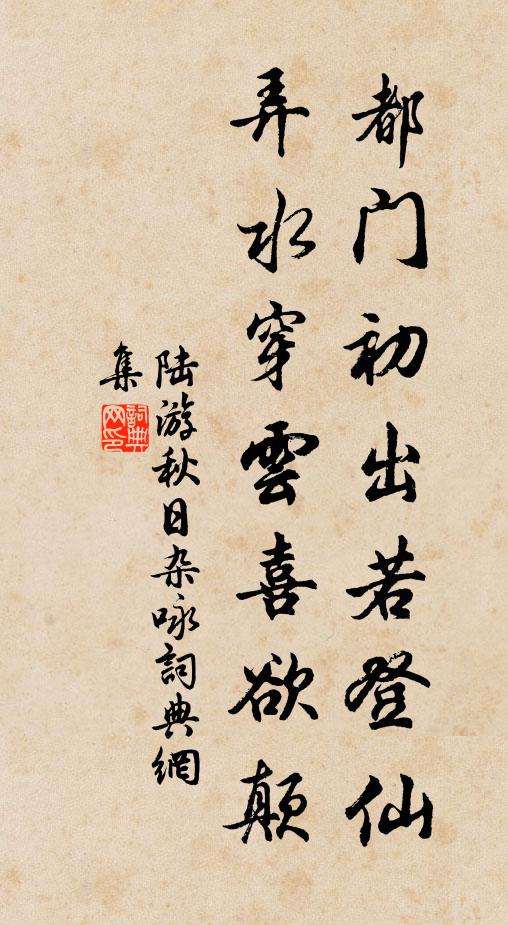 都门初出若登仙
弄水穿雲喜欲颠
陆游秋日杂咏詞典網
集
詞典
网印